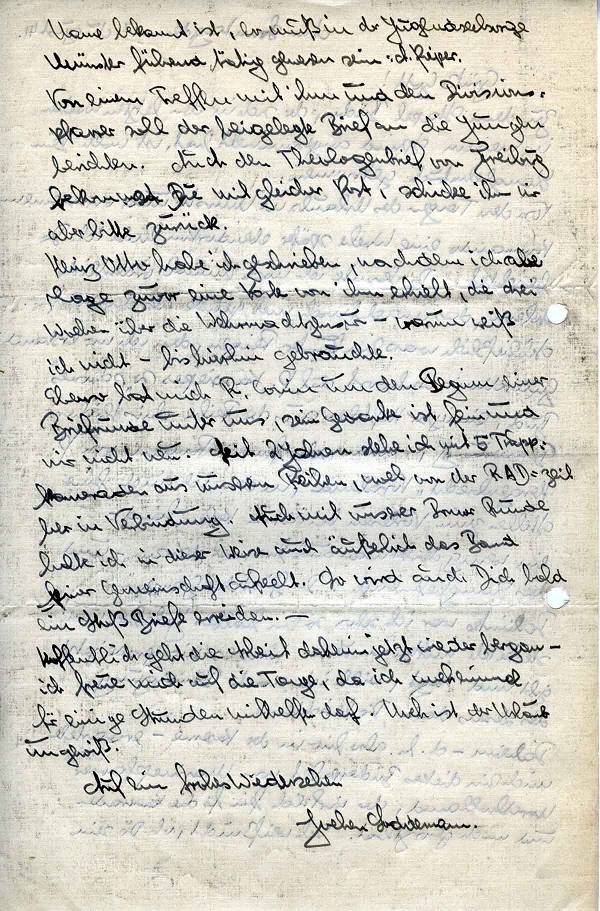 Name bekannt ist, er muß in der Jugendseelsorge
Münster führend tätig gewesen sein: d. Pieper.
Von einem Treffen mit ihm und den Divisions-
pfarrer soll der beigelegte Brief an die Jungen
berichten. Auch den Theologenbrief von Freiburg
bekommst Du mit gleicher Post, schicke ihn mir
aber bitte zurück.
Heinz Otto habe ich geschrieben, nachdem ich
Tage zuvor eine Karte von ihm erhielt, die drei
Wochen über die Wehrmachtzensur – warum weiß
ich nicht – bis hierhin gebrauchte.
Ebenso bat mich R. um den Beginn einer
Briefrunde unter uns, sein Gedanke ist fein und
mir nicht neu. Seit 2 Jahren stehe ich mit 5
kameraden aus unseren Reihen, noch von der RAD-zeit
her in Verbindung. Auch mit unserer Runde
halte ich in dieser Weise auch äußerlich das Band
einer Gemeinschaft aufrecht. So wird auch Dich bald
ein Stoß Briefe erreichen. –
Hoffentlich geht die Arbeit daheim jetzt weiter bergan –
ich freue mich auf die Tage, da ich
für einige Stunden mithelfen darf. Noch ist der Urlaub
ungewiß.
Auf ein frohes Wiedersehen